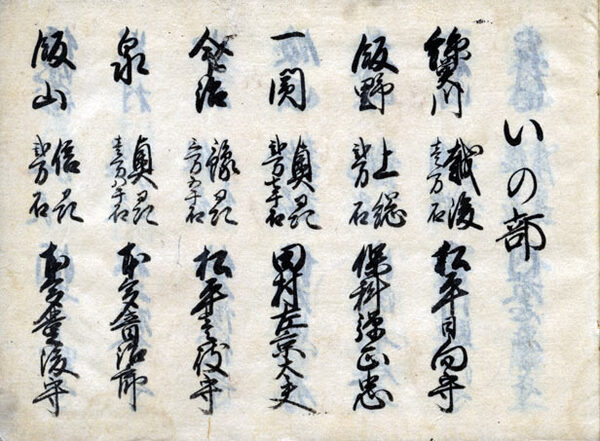 いの部
糸魚川 越後 壱万石 松平日向守
飯野 上総 弐万石 保科弾正忠
一関 奥刕 弐万七千石 田村左京大夫
今治 豫刕 三万五千石 松平壱岐守
泉 奥刕 壱万八千石 本多
飯山 信刕 弐万石 本多豊後守